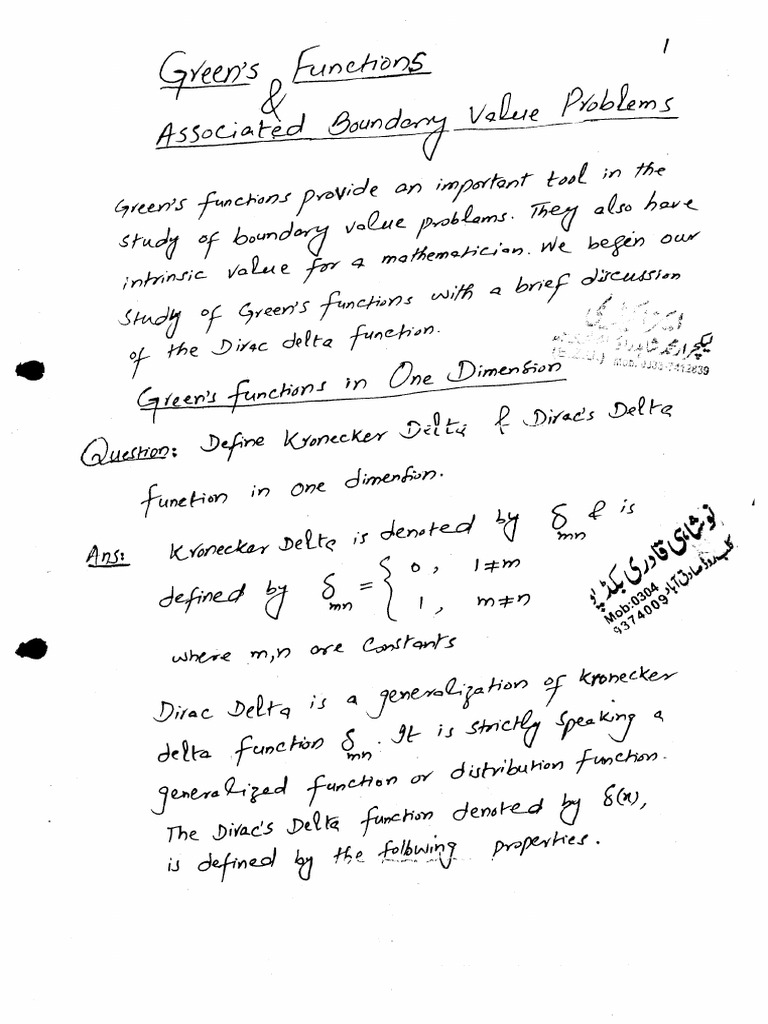 1
Green's Functions
&
Associated Boundary Value Problems
Green's functions provide an important tool in the
study of boundary value problems. They also have
intrinsic value for a mathematician. We begin our
study of Green's functions with a brief discussion
of the Dirac delta function.
Green's functions in One Dimension
Question: Define Kronecker Delta & Dirac's Delta
function in one dimension.
Ans: Kronecker Delta is denoted by δmn & is
defined by δmn = { 0, 1≠m
1, m≠n
where m,n are constants
Dirac Delta is a generalization of Kronecker
delta function δmn. It is strictly speaking a
generalized function or distribution function.
The Dirac's Delta function denoted by δ(x),
is defined by the following properties.
نوشاہی قادری بکڈپو
کلب روڈ صادق آباد
Mob:0304
9374009